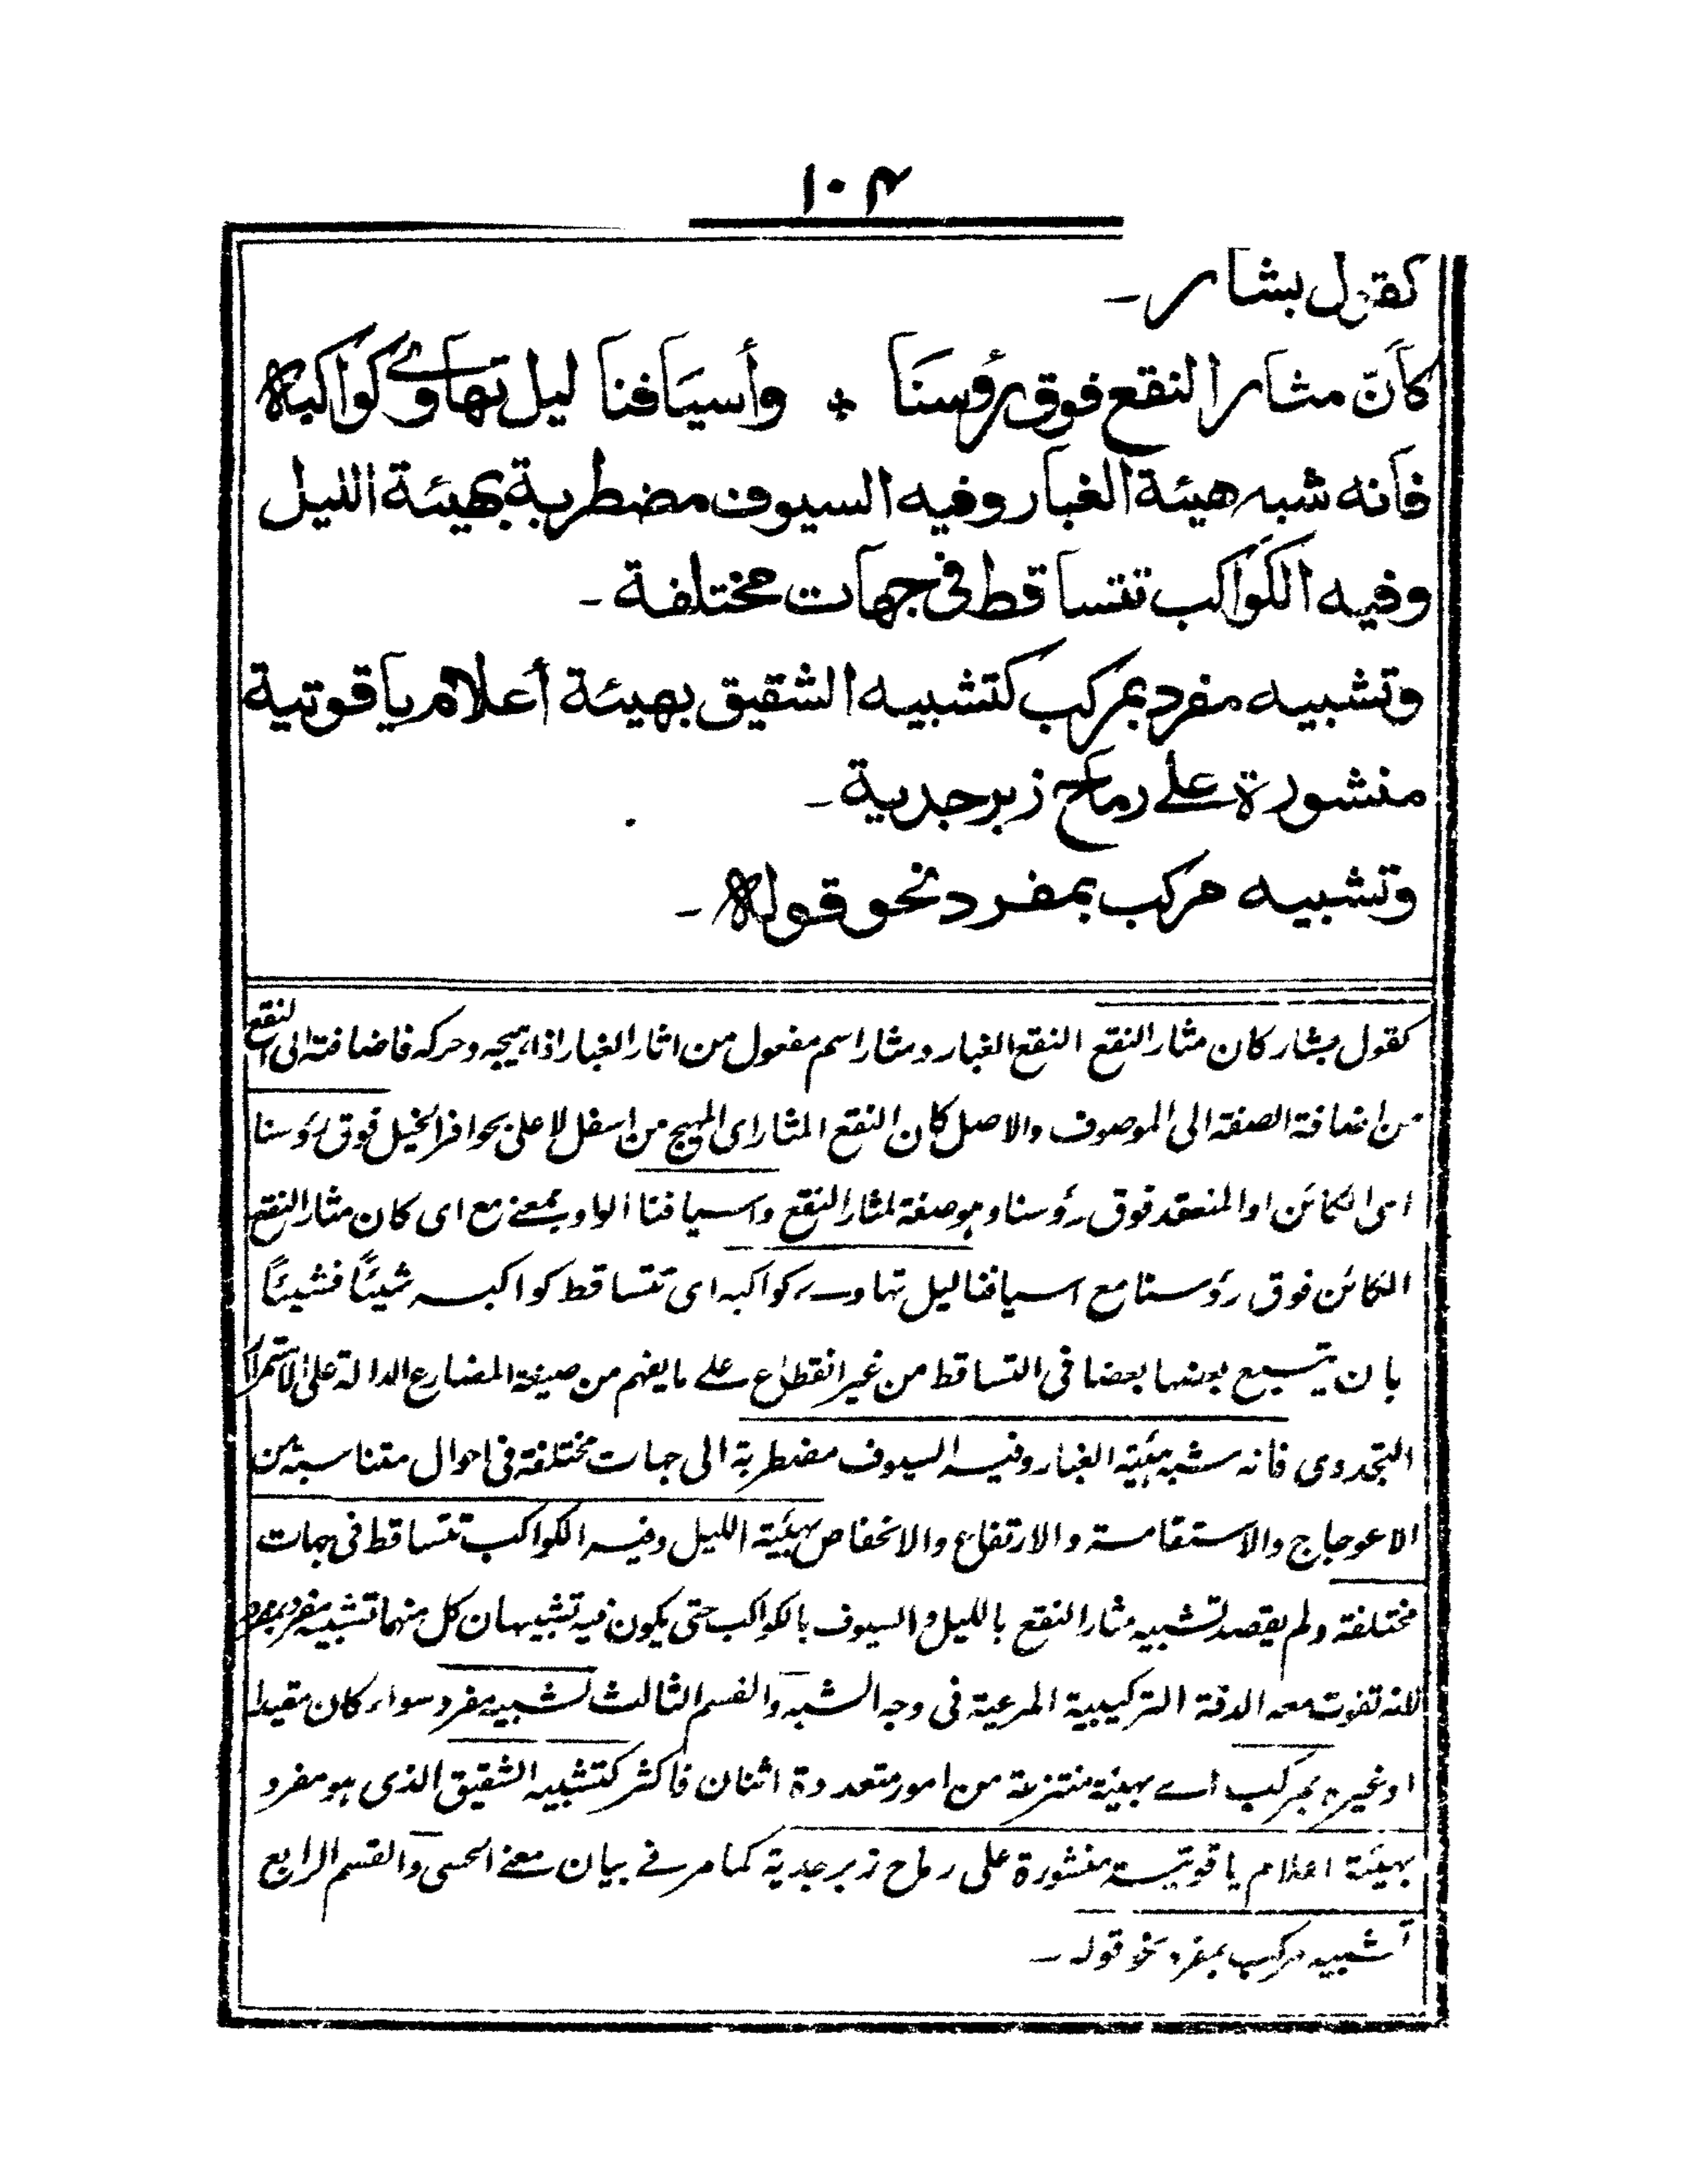 ١٠٤
كقول بشار ـ
كأنّ مثار النقع فوق رؤسنا + وأسيافنا ليل تهاوے كواكبه
فانه شبه هيئة الغبار وفيه السيوف مضطربة بهيئة الليل
وفيه الكواكب تتساقط فى جهات مختلفة ـ
وتشبيه مفرد بمركب كتشبيه الشقيق بهيئة أعلام ياقوتية
منشورة علے رماح زبرجدية ـ
وتشبيه مركب بمفرد نحو قوله ـ
كقول بشار كان مثار النقع النقع الغبار ومثار اسم مفعول من اثار الغبار اذا هيجه وحركه فاضافته الى النقع
من اضافة الصفة الى الموصوف والاصل كان النقع المثار اى المهيج من اسفل لاعلى بحوافر الخيل فوق رؤسنا
اى الكائن او المنعقد فوق رؤسنا وهو صفة لمثار النقع واسيافنا الواو بمعنے مع اى كان مثار النقع
الكائن فوق رؤسنا مع اسيافنا ليل تهاوے كواكبه اى تتساقط كواكبه شيئاً فشيئاً
بان يتبع بعضها بعضا فى التساقط من غير انقطاع علے ما يفهم من صيغة المضارع الدالة على الاستمرار
التجددى فانه شبه هيئة الغبار وفيه السيوف مضطربة الى جهات مختلفة فى احوال متناسبة من
الاعوجاج والاستقامة والارتفاع والانخفاض بهيئة الليل وفيه الكواكب تتساقط فى جهات
مختلفة ولم يقصد تشبيه مثار النقع بالليل والسيوف بالكواكب حتى يكون فيه تشبيهان كل منهما تشبيه مفرد بمفرد
لانه تفوت معه الدقة التركيبية المرعية فى وجه الشبه والقسم الثالث تشبيه مفرد سواء كان مقيدا
او غيره بمركب اے بهيئة منتزعة من امور متعددة اثنان فاكثر كتشبيه الشقيق الذى هو مفرد
بهيئة اعلام ياقوتية منشورة على رماح زبرجدية كما مر فے بيان معنے الحسى والقسم الرابع
تشبيه مركب بمفرد نحو قوله ـ